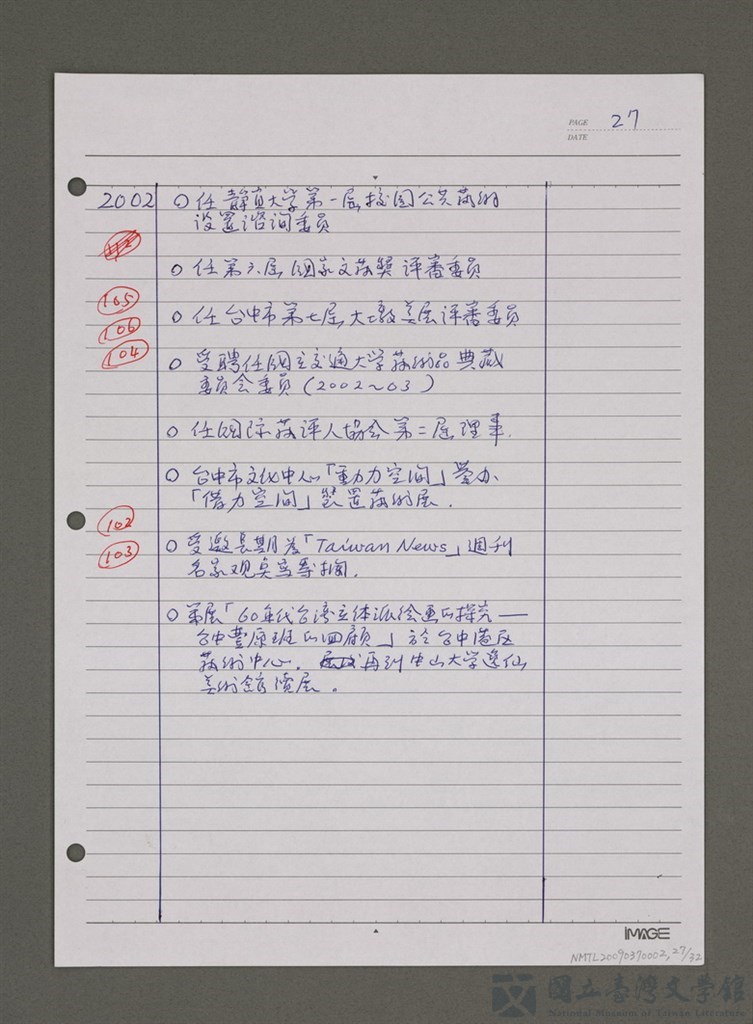 PAGE 27
DATE
2002
○ 任靜宜大学第一届校园公共藝術
设置谘询委員
○ 任第六届国家文藝獎評審委員
105
○ 任台中市第七届大墩美展評審委員
106
104
○ 受聘任国立交通大学藝術品典藏
委員会委員(2002~03)
○ 任国际藝评人協会第二届理事.
○ 台中市文化中心「動力空间」举办
「借力空间」裝置藝術展.
102
○ 受邀長期為「Taiwan News」週刊
103
名家观点寫專欄.
○ 策展「60年代台湾立体派绘画的探究——
台中豐原班的回顧」於台中港区
藝術中心. 再到中山大学逸仙
美術館續展.
IMAGE
NMTL20090370002, 27/32
國立臺灣文學館
National Museum of Taiwan Literature